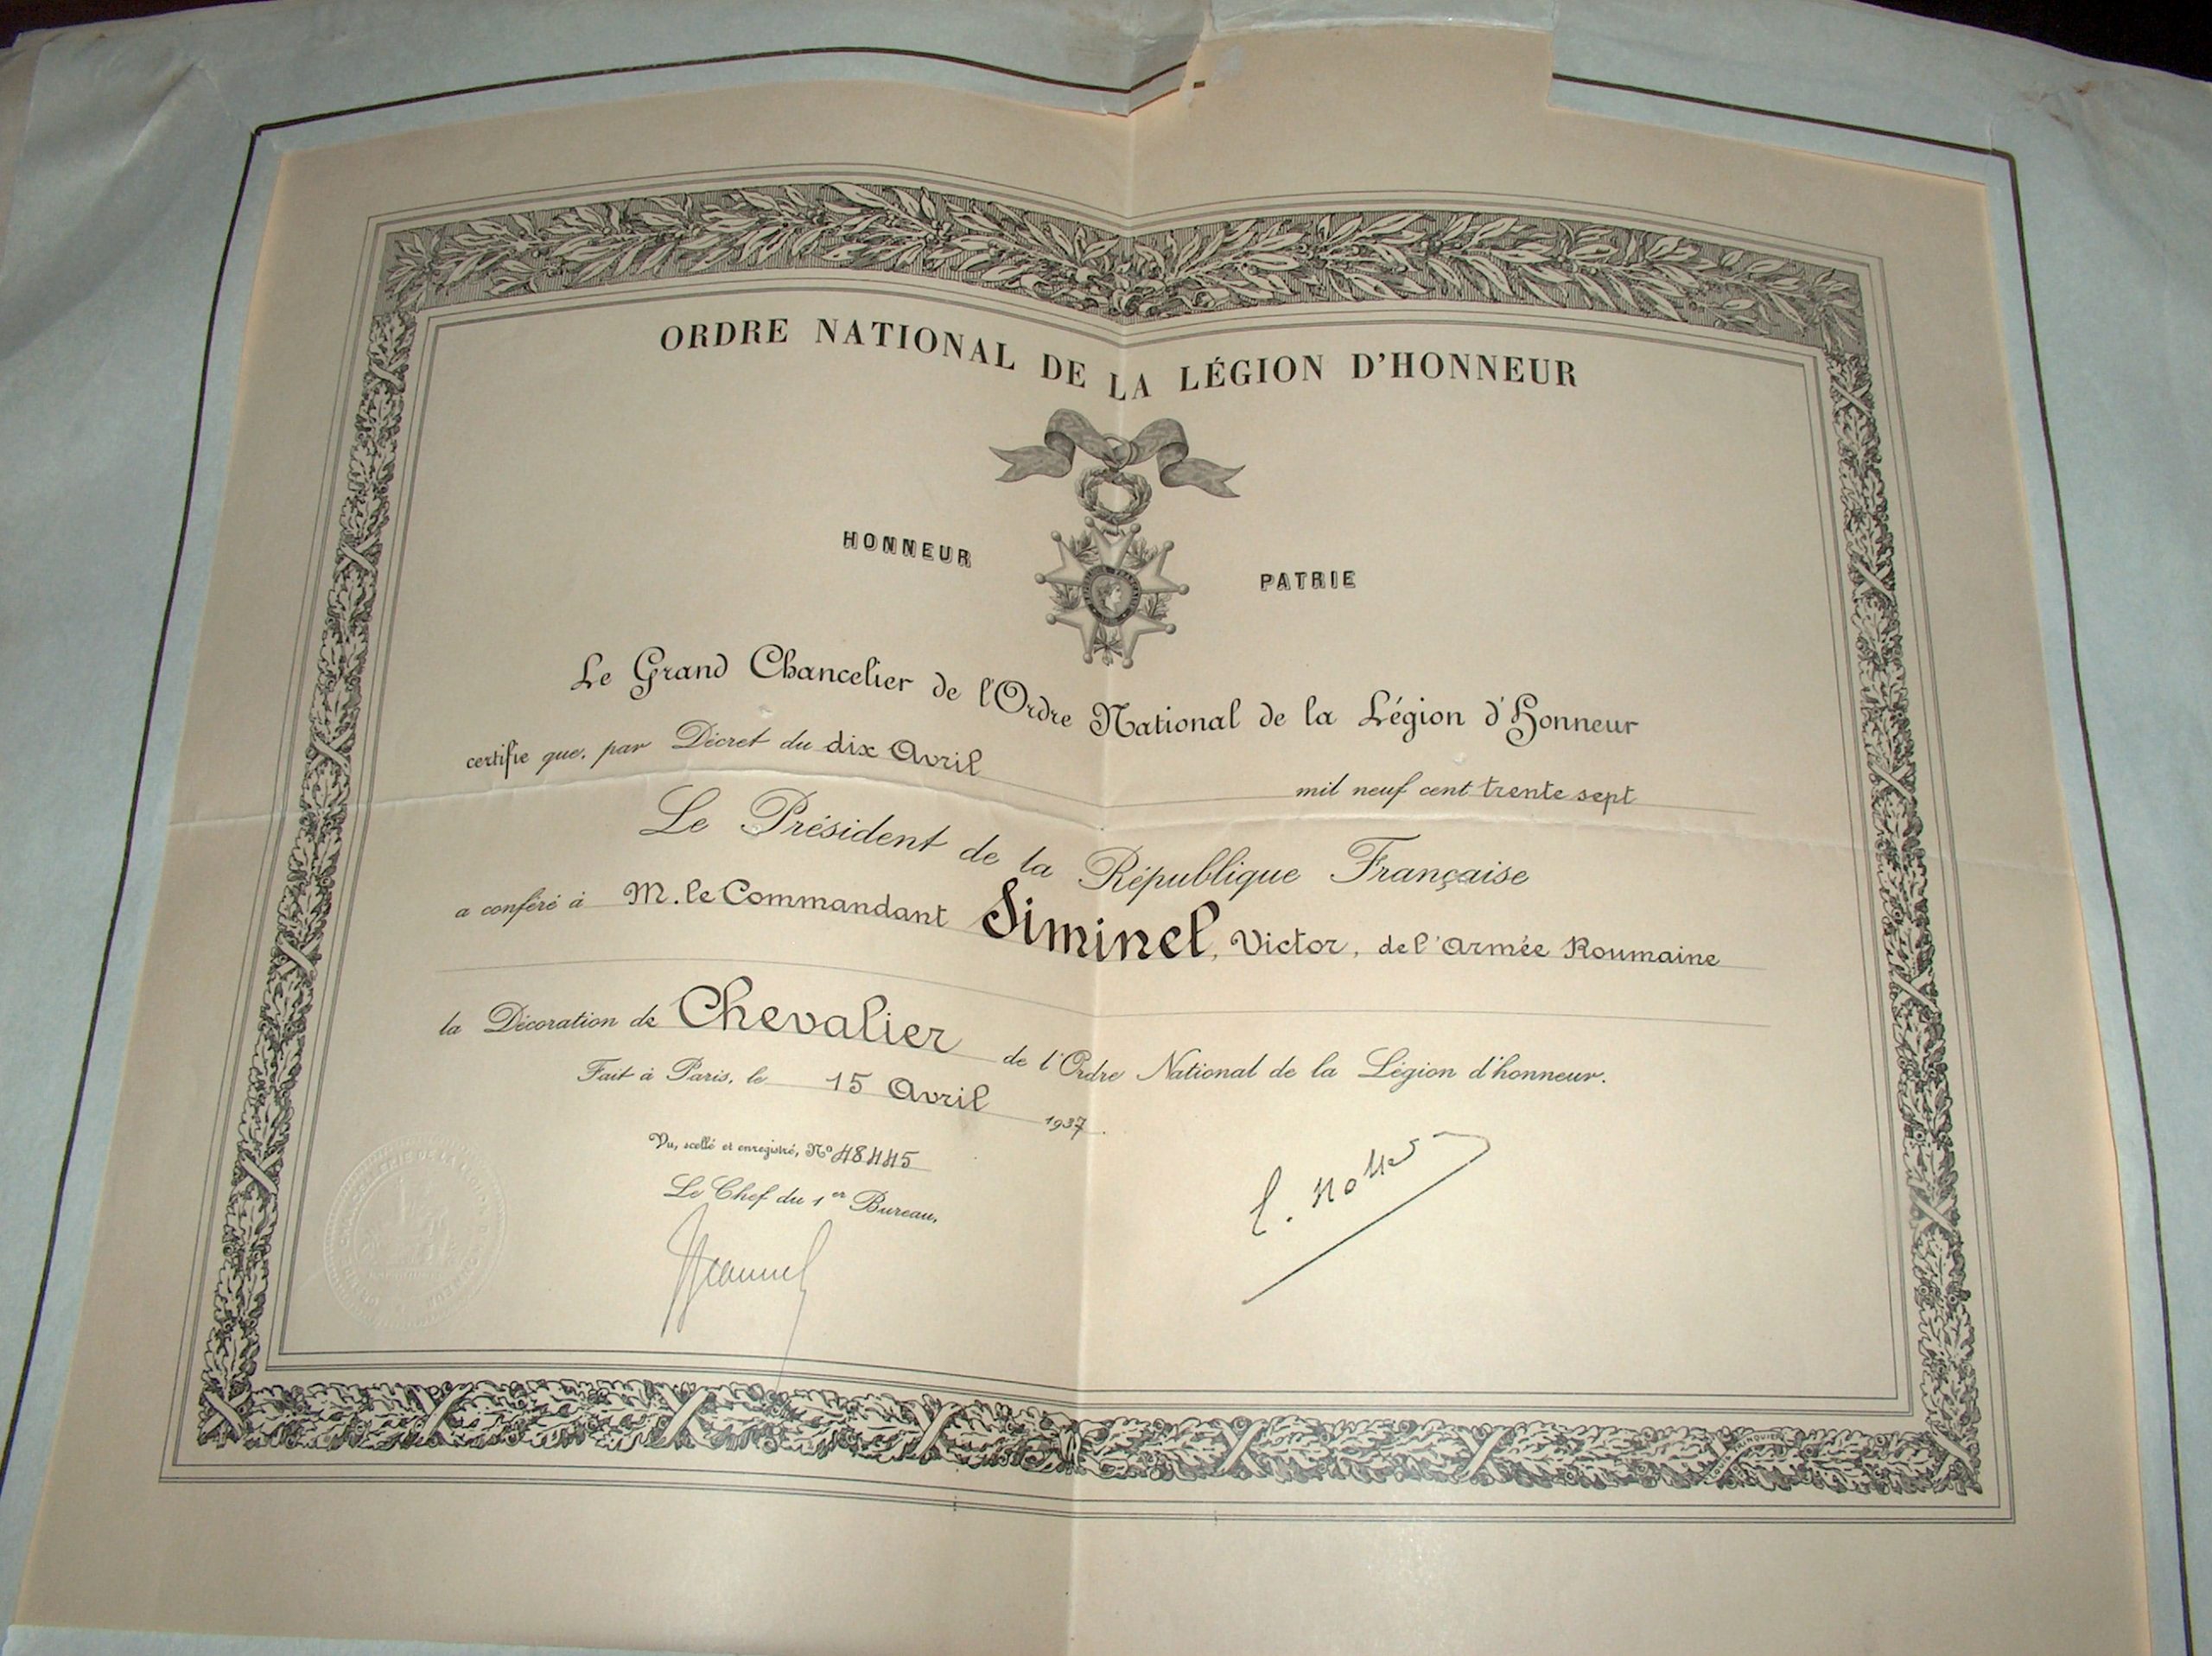 ORDRE NATIONAL DE LA LÉGION D'HONNEUR
HONNEUR PATRIE
Le Grand Chancelier de l'Ordre National de la Légion d'Honneur
certifie que, par Décret du dix Avril mil neuf cent trente sept
Le Président de la République Française
a conféré à M. le Commandant Siminel, Victor, de l'Armée Roumaine
la Décoration de Chevalier de l'Ordre National de la Légion d'honneur.
Fait à Paris, le 15 Avril 1937.
Vu, scellé et enregistré, N° 48445
Le Chef du 1er Bureau,